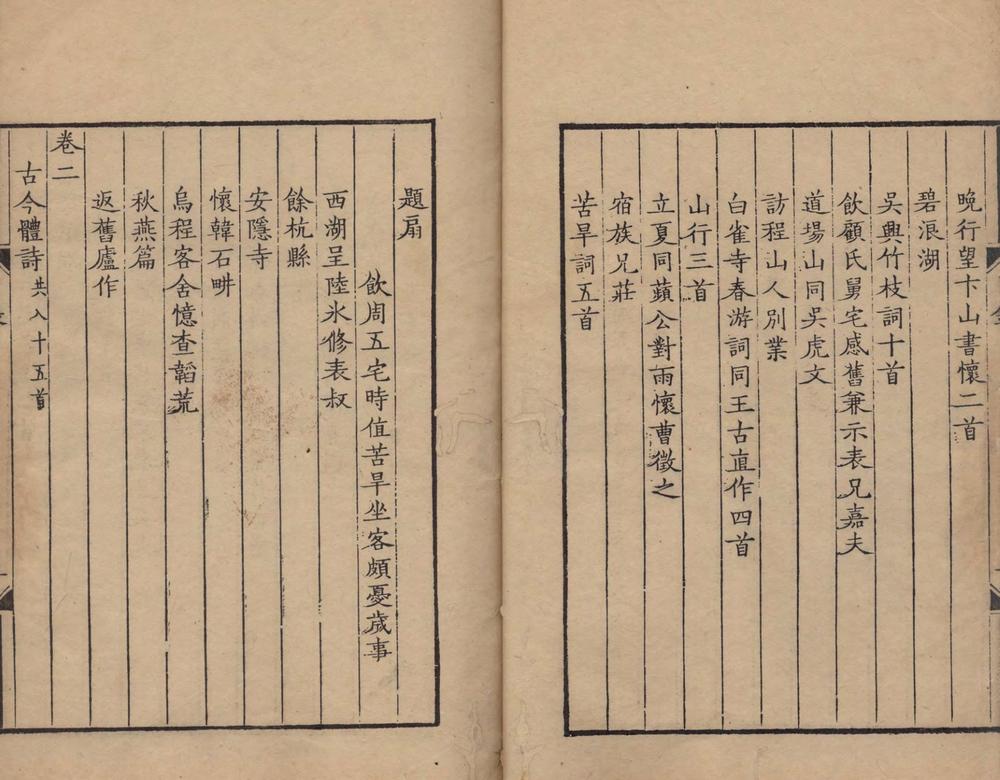 晚行望卞山書懷二首
碧浪湖
吳興竹枝詞十首
飲顧氏舅宅感舊兼示表兄嘉夫
道場山同吳虎文
訪程山人別業
白雀寺春游詞同王古直作四首
山行三首
立夏同蘋公對雨懷曹徵之
宿族兄莊
苦旱詞五首
題扇
飲周五宅時值苦旱坐客頗憂歲事
西湖呈陸氷修表叔
餘杭縣
安隱寺
懷韓石畊
烏程客舍憶查韜荒
秋燕篇
返舊廬作
卷二
古今體詩共八十五首